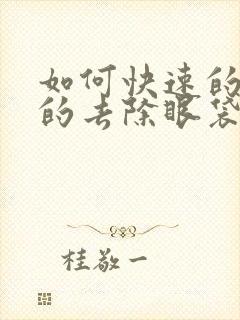 如何快速的
的去除眼袋
桂敬一